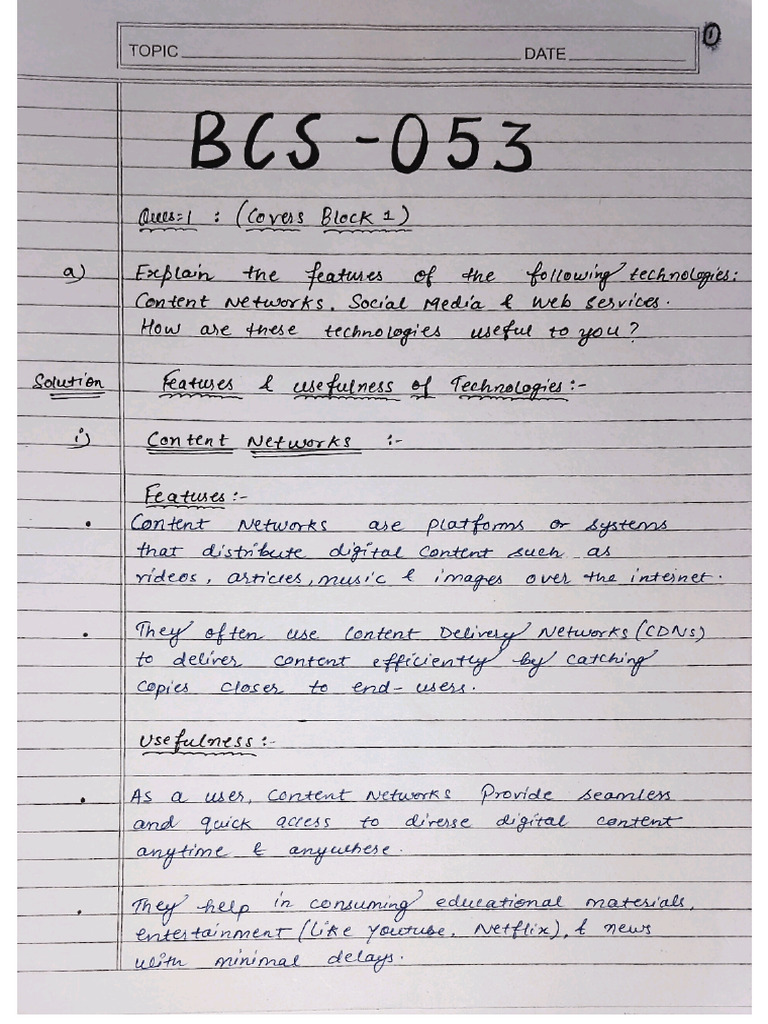 1
TOPIC DATE
BCS-053
Ques=1 : (Covers Block 1)
a) Explain the features of the following technologies:
Content Networks, Social Media & Web services.
How are these technologies useful to you?
Solution Features & usefulness of Technologies:-
i) Content Networks :-
Features:-
• Content Networks are platforms or systems
that distribute digital content such as
videos, articles, music & images over the internet.
• They often use Content Delivery Networks (CDNs)
to deliver content efficiently by catching
copies closer to end-users.
Usefulness:-
• As a user, Content Networks Provide seamless
and quick access to diverse digital content
anytime & anywhere.
• They help in consuming educational materials,
entertainment (like Youtube, Netflix), & news
with minimal delays.